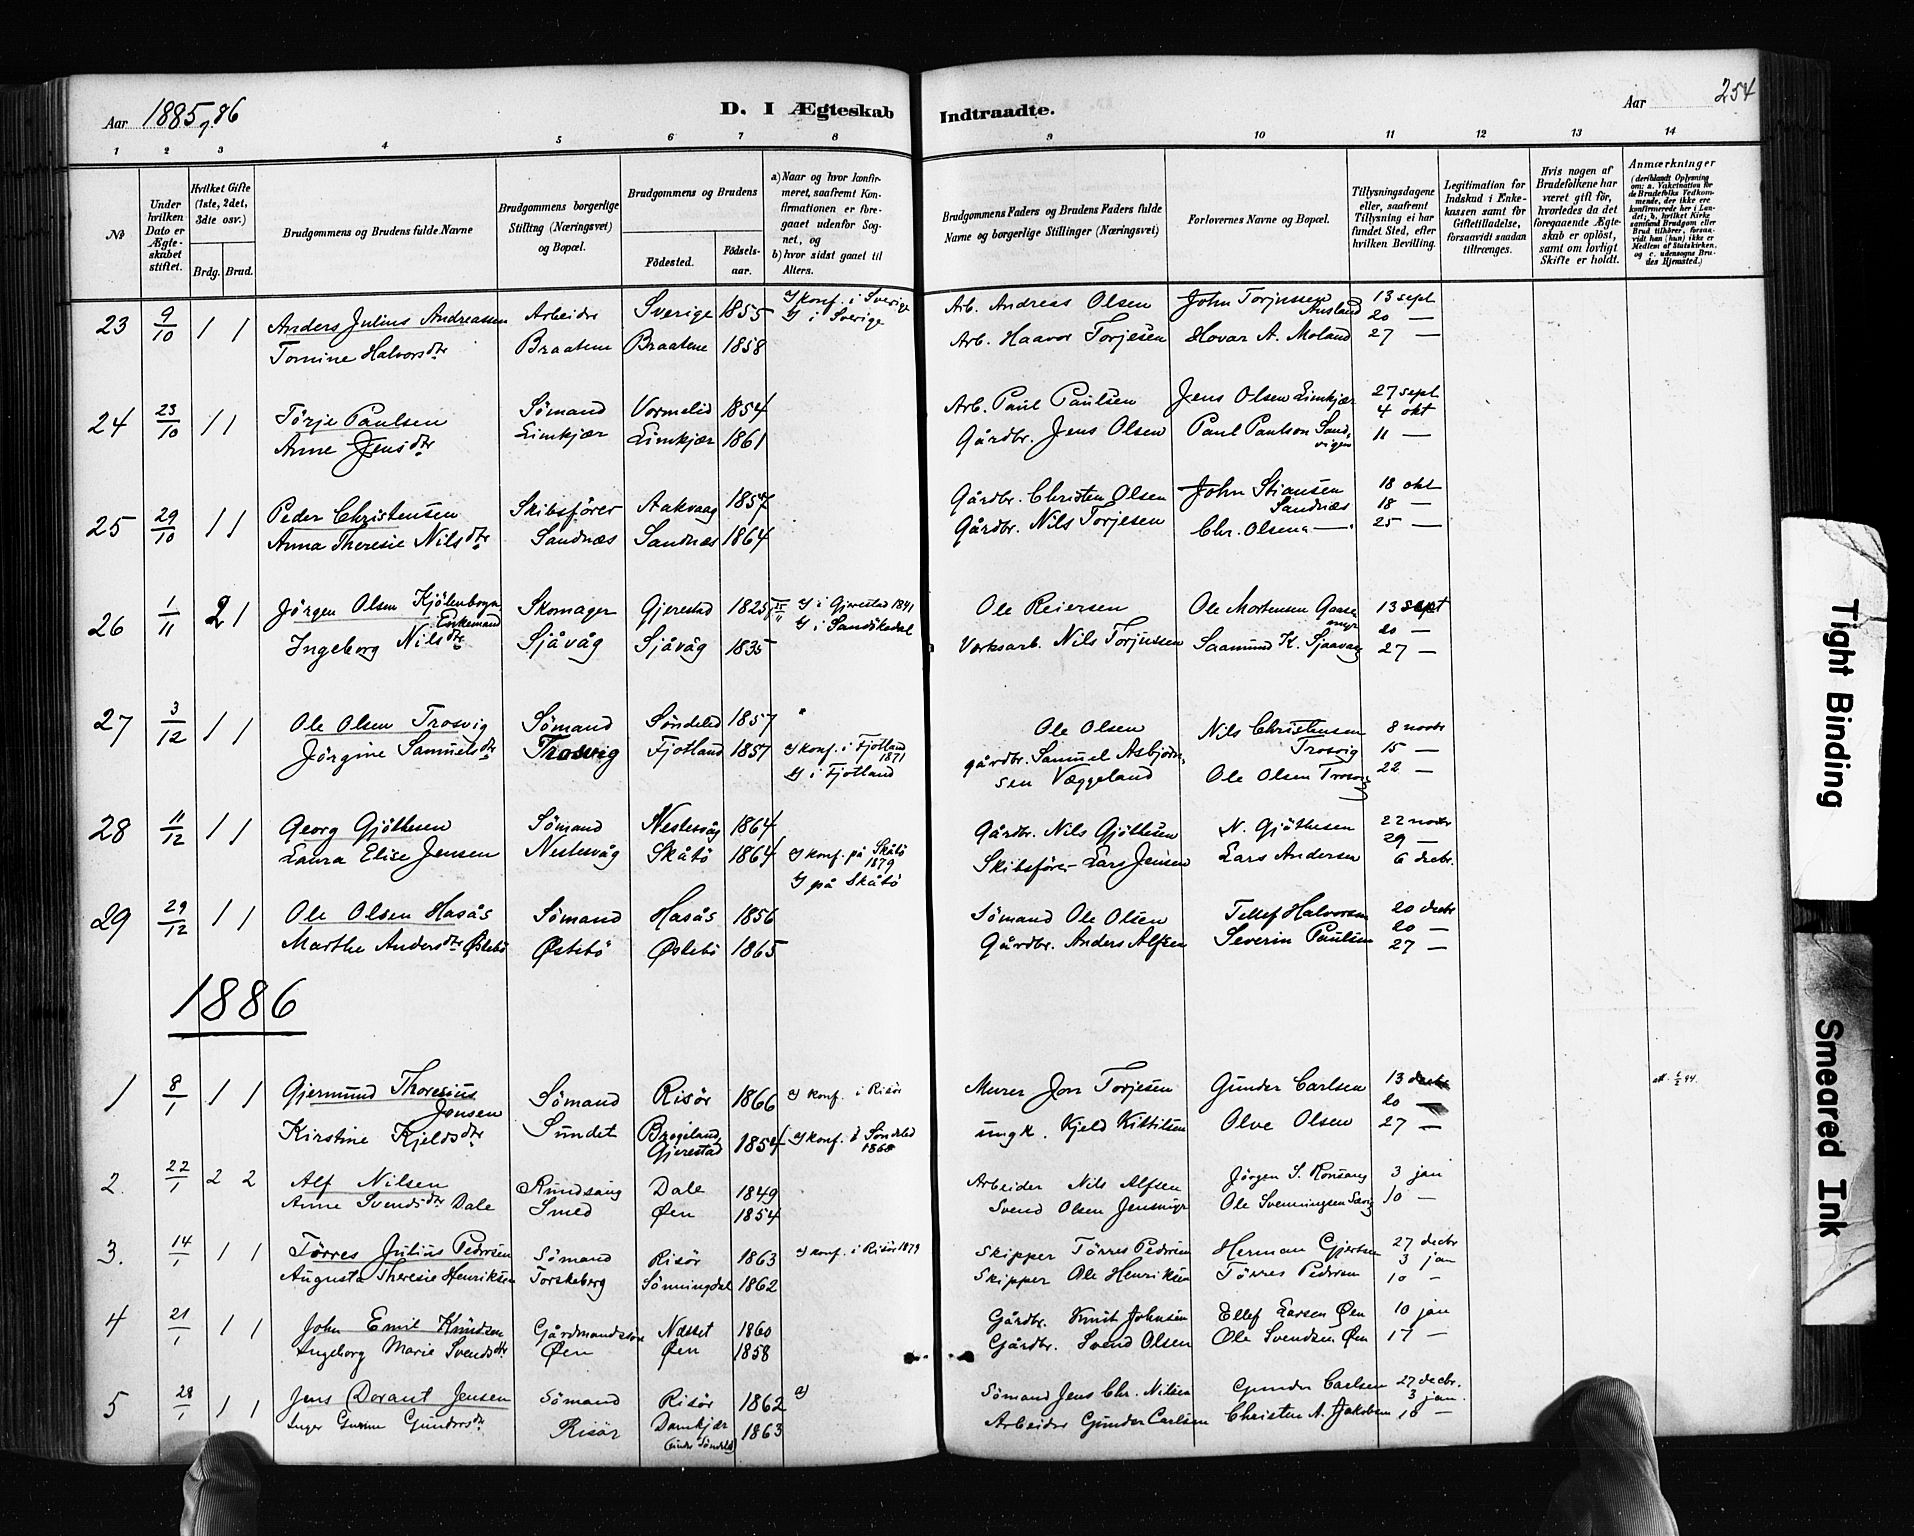 Aar 1885,86
D. I Ægteskab Indtraadte.
Aar
254
1 2 3 4 5 6 7 8 9 10 11 12 13 14
No
Under hvilken Dato er Ægteskabet stiftet.
Hvilket Gifte (1ste, 2det, 3die osv.)
Brdg. Brud.
Brudgommens og Brudens fulde Navne
Brudgommens borgerlige Stilling (Næringsvei) og Bopæl.
Brudgommens og Brudens
Födested.
Födselsaar.
a) Naar og hvor konfirmeret, saafremt Konfirmationen er foregaaet udenfor Sognet, og
b) hvor sidst gaaet til Alters.
Brudgommens Faders og Brudens Faders fulde Navne og borgerlige Stillinger (Næringsvei)
Forlovernes Navne og Bopæl.
Tillysningsdagene eller, saafremt Tillysning ei har fundet Sted, efter hvilken Bevilling.
Legitimation for Indskud i Enkekassen samt for Giftetilladelse, forsaavidt saadan tiltrænges.
Hvis nogen af Brudefolkene har været gift för, hvorledes da det foregaaende Ægteskab er oplöst, samt om lovligt Skifte er holdt.
Anmærkninger
(deriblandt Oplysning om: a. Vakcination for de Brudefolks Vedkommende, der ikke ere konfirmerede her i Landet; b. hvilket Kirkesamfund Brudgom eller Brud tilhörer, forsaavidt han (hun) ikke er Medlem af Statskirken, og c. udensogns Brudes Hjemsted.)
23 9/10 1 1 Anders Julius Andreassen Arbeider Sverige 1855 a) konf. i Sverige Arb. Andreas Olsen John Torjussen Ausland 13 sept
b) i Sverige 20 —
Tomine Halvorsdtr Braatene Braatene 1858 Arb. Haavor Torjesen Hovar A. Moland 27 —
24 23/10 1 1 Törje Paulsen Sömand Vormelid 1854 Arb. Paul Paulsen Jens Olsen Limkjær 27 sept
4 okt
Anne Jensdtr Limkjær Limkjær 1861 Gårdbr. Jens Olsen Paul Paulsen Sandvigen 11 —
25 29/10 1 1 Peder Christensen Skibsförer Aakvaag 1857 Gårdbr. Christen Olsen John Stiansen Sandnæs 18 okt
18 —
Anna Theresie Nilsdtr Sandnæs Sandnæs 1864 Gårdbr. Nils Torjesen Chr. Olsen — 25 —
26 1/11 2 1 Jörgen Olsen Kjölenbogn Enkemand Skomager Gjerestad 1825 a) i Gjerestad 1841 Ole Reiersen Ole Mortensen 13 sept
b) i Sandökedal 20 —
Ingeborg Nilsdtr Sjåvåg Sjåvåg 1835 Verksarb. Nils Torjussen Saamund K. Sjaavaag 27 —
27 3/12 1 1 Ole Olsen Trosvig Sömand Söndeled 1857 Ole Olsen Nils Christensen Trosvig 8 novbr
Jörgine Samuelsdtr Trosvig Fjotland 1857 a) konf. i Fjotland 1871 gårdbr. Samuel Asbjörnsen Væggeland 15 —
b) i Fjotland Ole Olsen Trosvig 22 —
28 11/12 1 1 Georg Gjöthesen Sömand Nestesvåg 1864 Gårdbr. Nils Gjöthesen N. Gjöthesen 22 novbr
29 —
Laura Elise Jensen Nestesvåg Skåtö 1864 a) konf. på Skåtö 1879 Skibsförer Lars Jensen Lars Andersen 6 decbr.
b) på Skåtö
29 29/12 1 1 Ole Olsen Hasås Sömand Hasås 1856 Sömand Ole Olsen Tellef Halvorsen 20 decbr
20 —
Marthe Andersdtr Östebö Östebö Östebö 1865 Gårdbr. Anders Alfsen Severin Paulsen 27 —
1886
1 8/1 1 1 Gjermund Thoresius Jonsen Sömand Risör 1866 a) konf. i Risör Murer Jon Torjesen Gunder Carlsen 13 decbr
20 —
Kirstine Kjeldsdtr Sundet Brogeland Gjerestad 1854 a) konf. i Söndeled 1868 ungk. Kjeld Kittilsen Olve Olsen 27 —
2. 22/1 2 2 Alf Nilsen Rundsang Dale 1849 Arbeider Nils Alfsen Jörgen S. Ronsang 3 jan
Anne Svendsdtr Dale Smed Øen 1854 Svend Olsen Jensmyr Ole Svenningsen 10 —
3. 14/1 1 1 Törres Julius Pedersen Sömand Risör 1863 a) konf. i Risör 1879 Skipper Törres Pedersen Herman Gjertsen 27 decbr
3 jan
Augusta Theresie Henriksen Torskeberg Sönningdal 1862 Skipper Ole Henriksen Törres Pedersen 10 -
4 21/1 1 1 John Emil Knudsen Gårdmandssön Næsset 1860 Gårdbr. Knut Johnsen Ellef Larsen Øen 10 jan
Ingeborg Marie Svendsdtr Øen Øen 1858 Gårdbr. Svend Olsen Ole Svendsen Øen 17 —
5 28/1 1 1 Jens Dorant Jensen Sömand Risör 1862 a) Sömand Jens Chr. Nilsen Gunder Carlsen 27 decbr.
3 jan.
Inger Gurine Gundersdtr Risör Damkjær (under Söndeled) 1863 Arbeider Gunder Carlsen Christen A. Jakobsen 10 —
Tight Binding
Smeared Ink